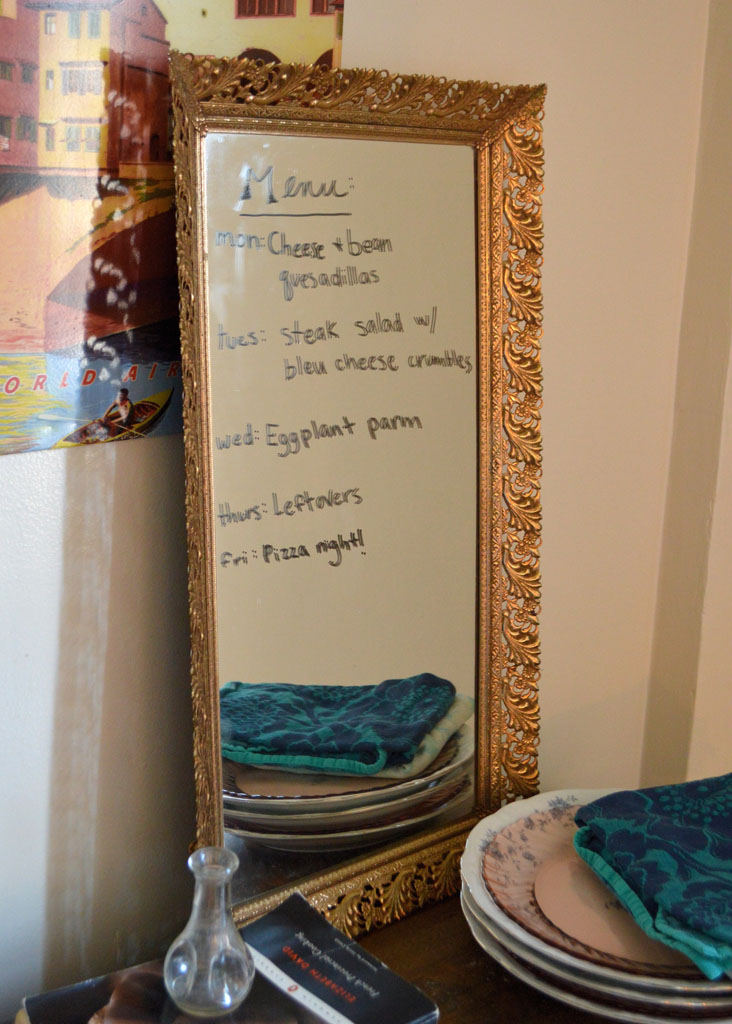 Menu:
mon: Cheese + bean
quesadillas
tues: steak salad w/
bleu cheese crumbles
wed: Eggplant parm
thurs: Leftovers
fri: Pizza night!
ORLD AIR
ELIZABETH DAVID
French Provincial Cooking